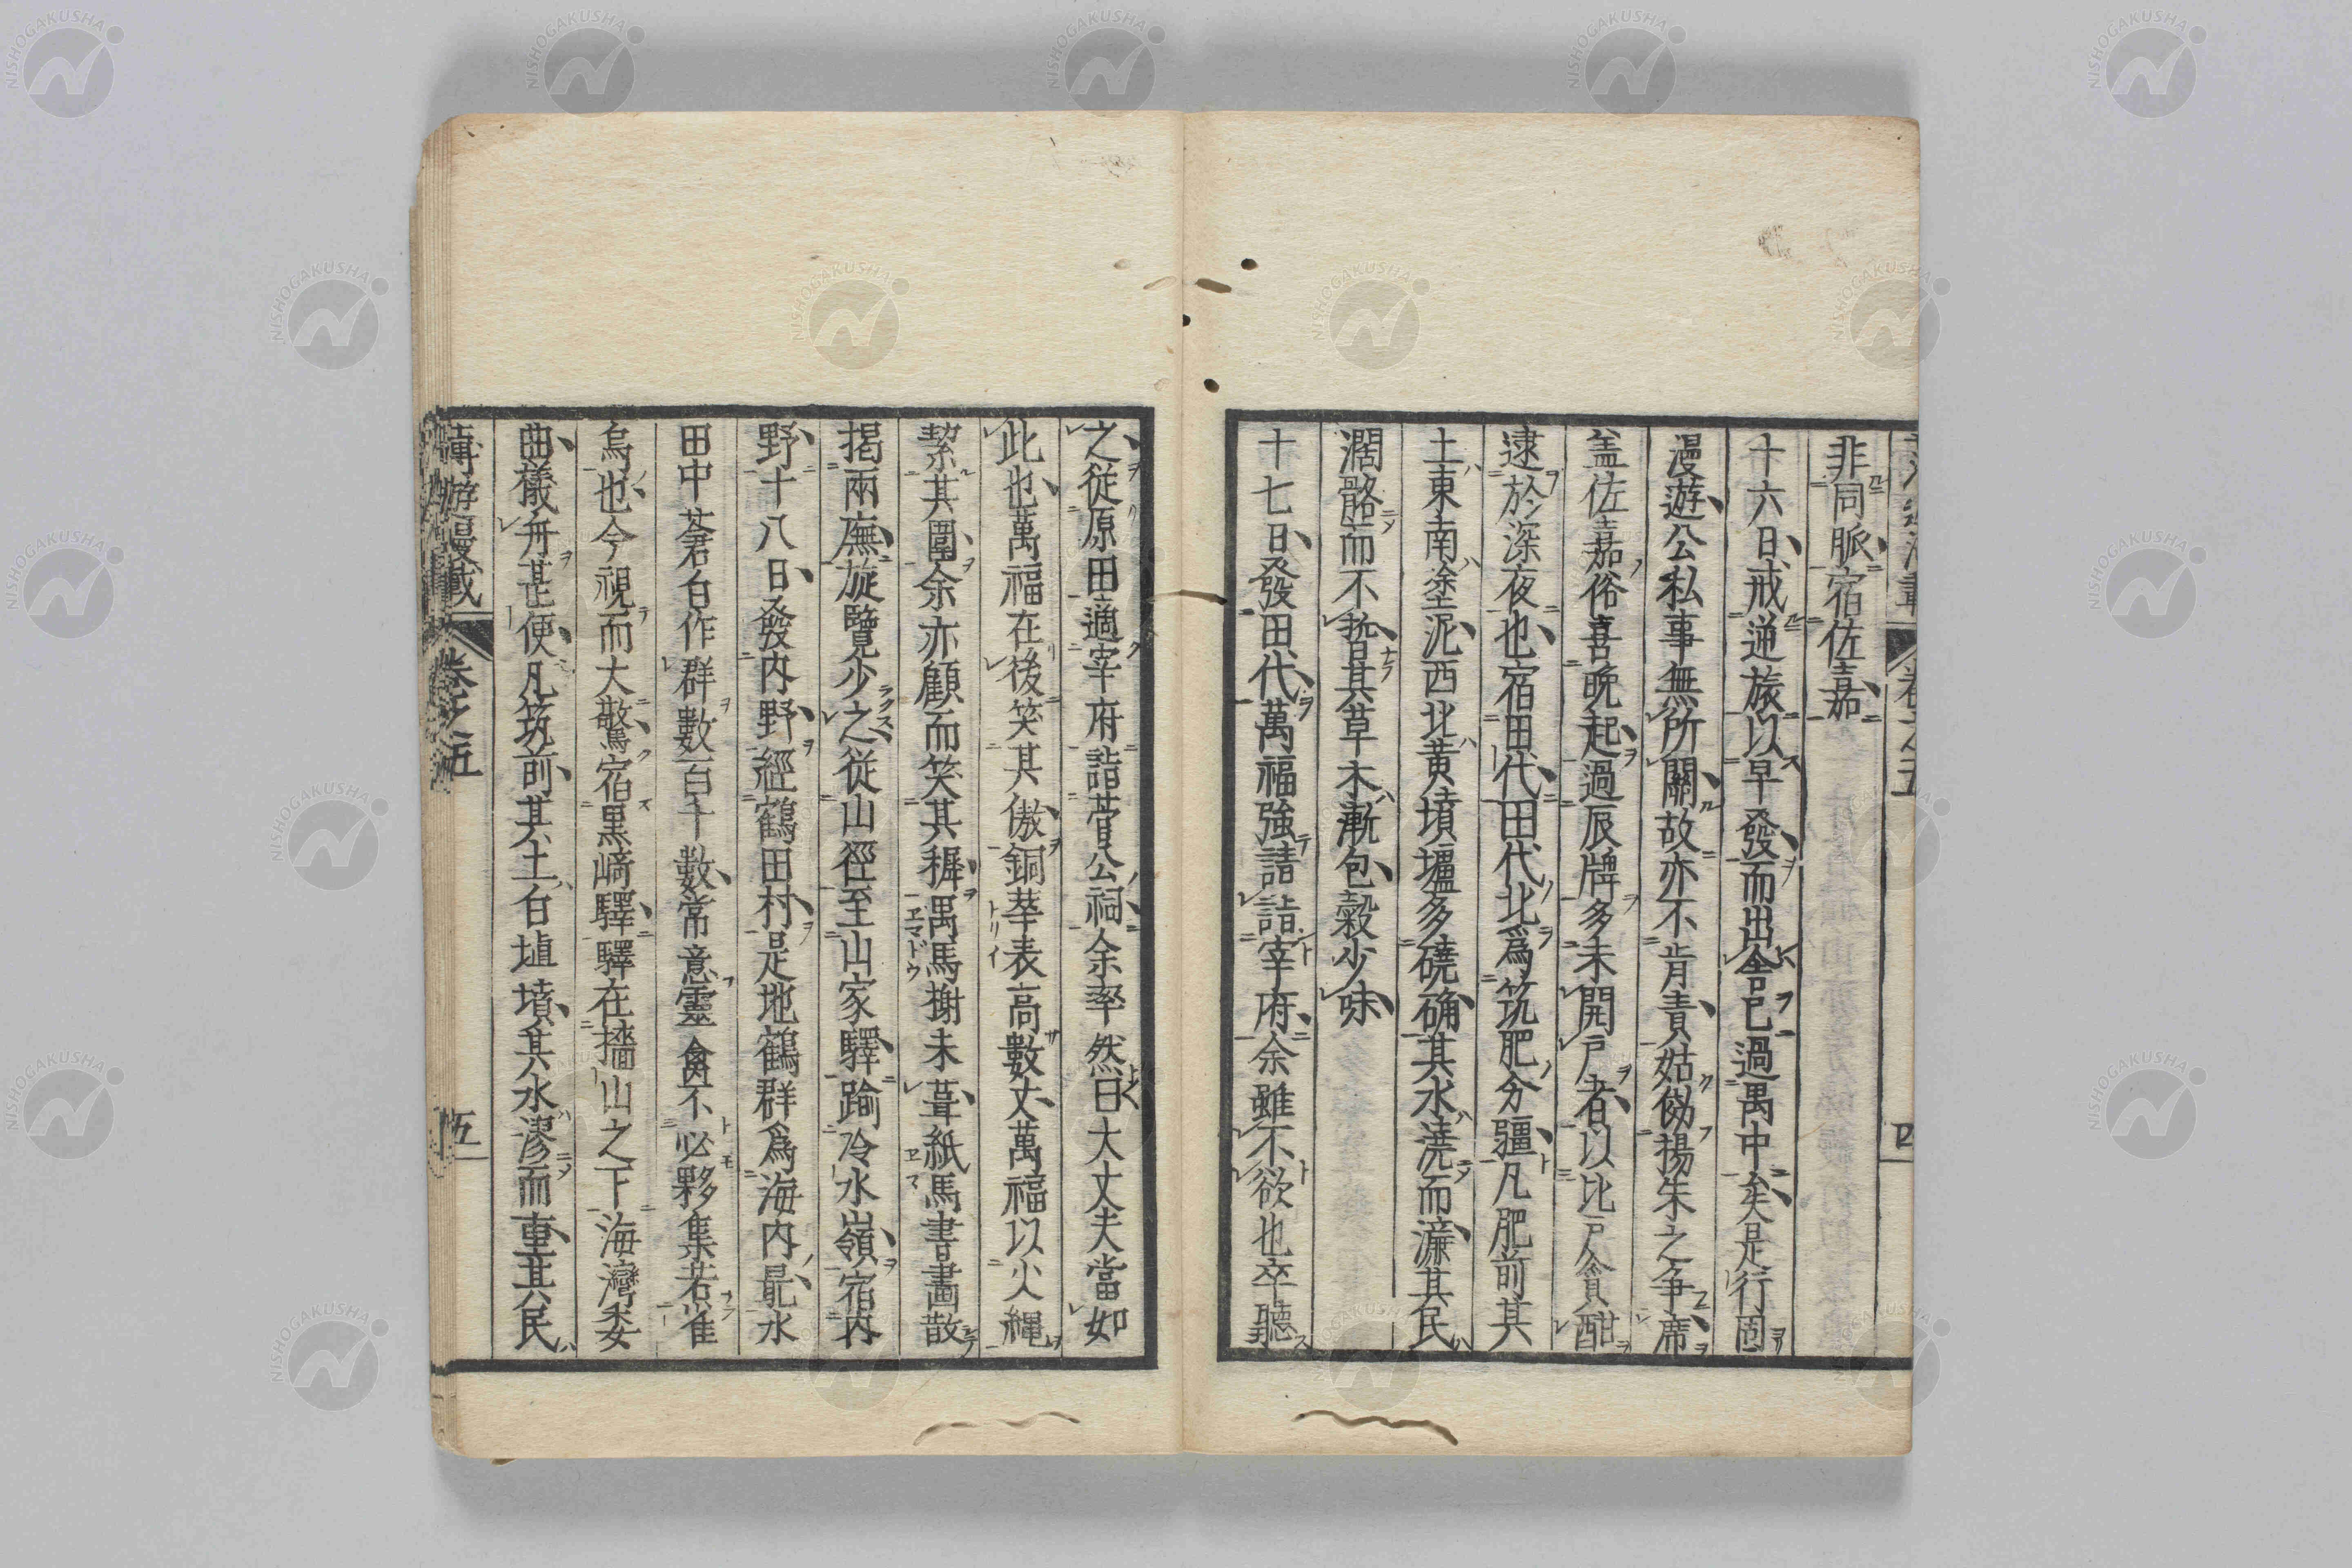 非同脈宿佐嘉
十六日戒逆旅以早發而出舍已過禺中矣是行固
漫遊公私事無所關故亦不肯責姑傚揚朱之争席
盖佐嘉俗喜晩起過辰牌多未開戸者以比戸貪酣
逮於深夜也宿田代田代北爲筑肥分疆凡肥前其
土東南塗泥西北黄墳壚多磽确其水澆而濂其民
濶骼而不其草木漸包穀少味
十七日發田代萬福強請詣宰府余雖不欲也卒聽
之從原田適宰府詣菅公祠余率然曰大丈夫當如
此也萬福在後笑其傲銅華表高數丈萬福以火繩
絜其圍余亦顧而笑其穉禺馬榭未葺紙馬書畫散
掲兩廡旋覽少之從山徑至山家驛踰冷水嶺宿内
野十八日發内野經鶴田村是地鶴群爲海内最水
田中蒼白作群數百千數常意靈禽不必夥集若雀
烏也今視而大驚宿黒﨑驛驛在擂山之下海灣委
曲檥舟甚便凡筑前其土白埴墳其水漻而重其民
漫載 卷之五 五
NISHOGAKUSHA